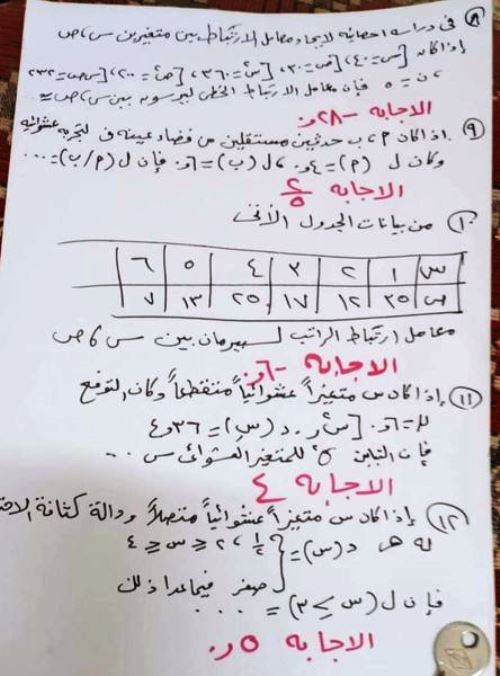 ٨) فى دراسة احصائية لايجاد معامل الارتباط بين متغيرين س، ص
إذا كان [س = ٤٠، [ص = ٣٠، [س² = ٣٦٠، [ص² = ٢٠٠، [س ص = ٢٣٢
، ن = ٥ فإن معامل الارتباط الخطى لبيرسون بين س، ص =
الاجابه - ٢٨و.
٩) إذا كان P، ب حدثين مستقلين من فضاء عينة ف لتجربة عشوائية
وكان ل (P) = ٤و.، ل (ب) = ٦و. فإن ل (P/ب) = ...
الاجابه ٢/٥
١٠) من بيانات الجدول الأتى
س ١ ٢ ٣ ٤ ٥ ٦
ص ٣٥ ١٢ ١٧ ٢٥ ١٣ ٧
معامل ارتباط الرتب لسبيرمان بين س، ص
الاجابه - ٦و.
١١) إذا كان س متغيراً عشوائياً متقطعاً وكان التوقع
µ = ٦و. [س² ر . د (س ر) = ٣٦و٤
فإن التباين σ² للمتغير العشوائى س ...
الاجابه ٤
١٢) إذا كان س متغيراً عشوائياً متصلاً ودالة كثافة الاحت
له هى د (س) = { ١/٢ ، ٢ ≤ س ≤ ٤
صفر فيما عدا ذلك
فإن ل (س ≥ ٣) = ....
الاجابه ٥و.